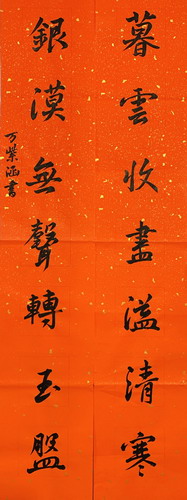 暮雲收盡溢清寒
銀漢無聲轉玉盤
万紫涵書